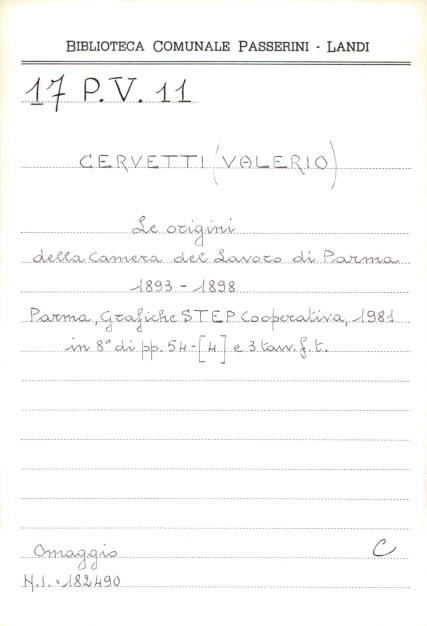 BIBLIOTECA COMUNALE PASSERINI - LANDI
17 P.V. 11
CERVETTI (VALERIO)
Le origini
della Camera del Lavoro di Parma
1893 - 1898
Parma, Grafiche STEP Cooperativa, 1981
in 8° di pp. 54-[4] e 3 tavv. f. t.
Omaggio C
N.I. = 182490